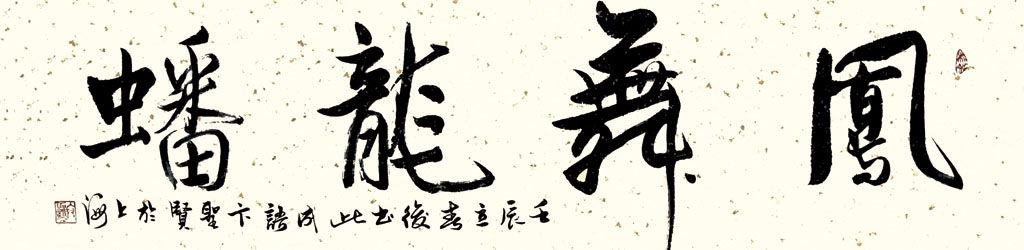 鳳舞龍蟠
壬辰立春後書此成語卞聖賢於上海